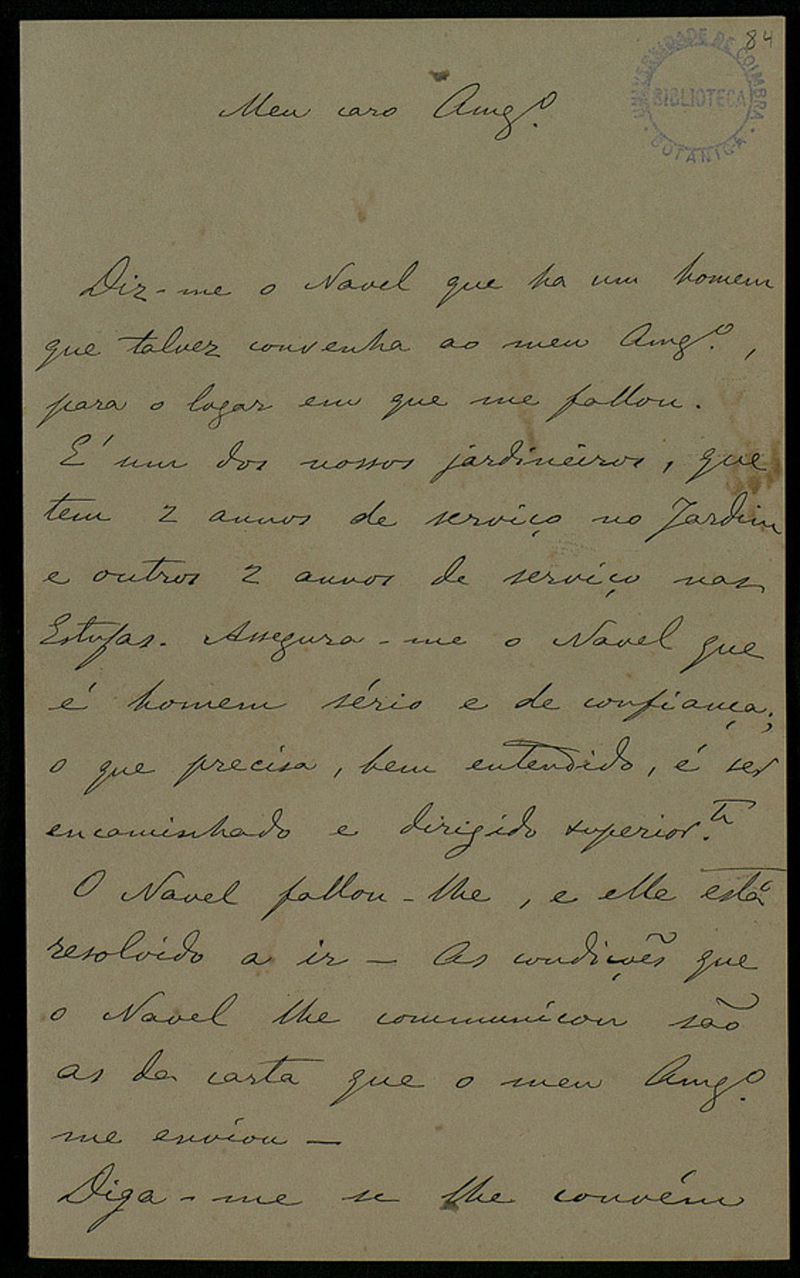 84
UNIVERSIDADE DE COIMBRA
BIBLIOTECA
BOTANICA
Meu caro Amgº.
Diz-me o Navel que ha um homem
que talvez convenha ao meu Amgº.,
para o logar em que me fallou.
É um dos nossos jardineiros, que
tem 2 annos de serviço no Jardim
e outros 2 annos de serviço nas
Estufas. Assegura-me o Navel que
é homem sério e de confiança;
o que precisa, bem entendido, é ser
encaminhado e dirigido superior.te
O Navel fallou-lhe, e elle está
resolvido a ir — As condições que
o Navel lhe communicou são
as da carta que o meu Amgº.
me enviou —
Diga-me se lhe convém